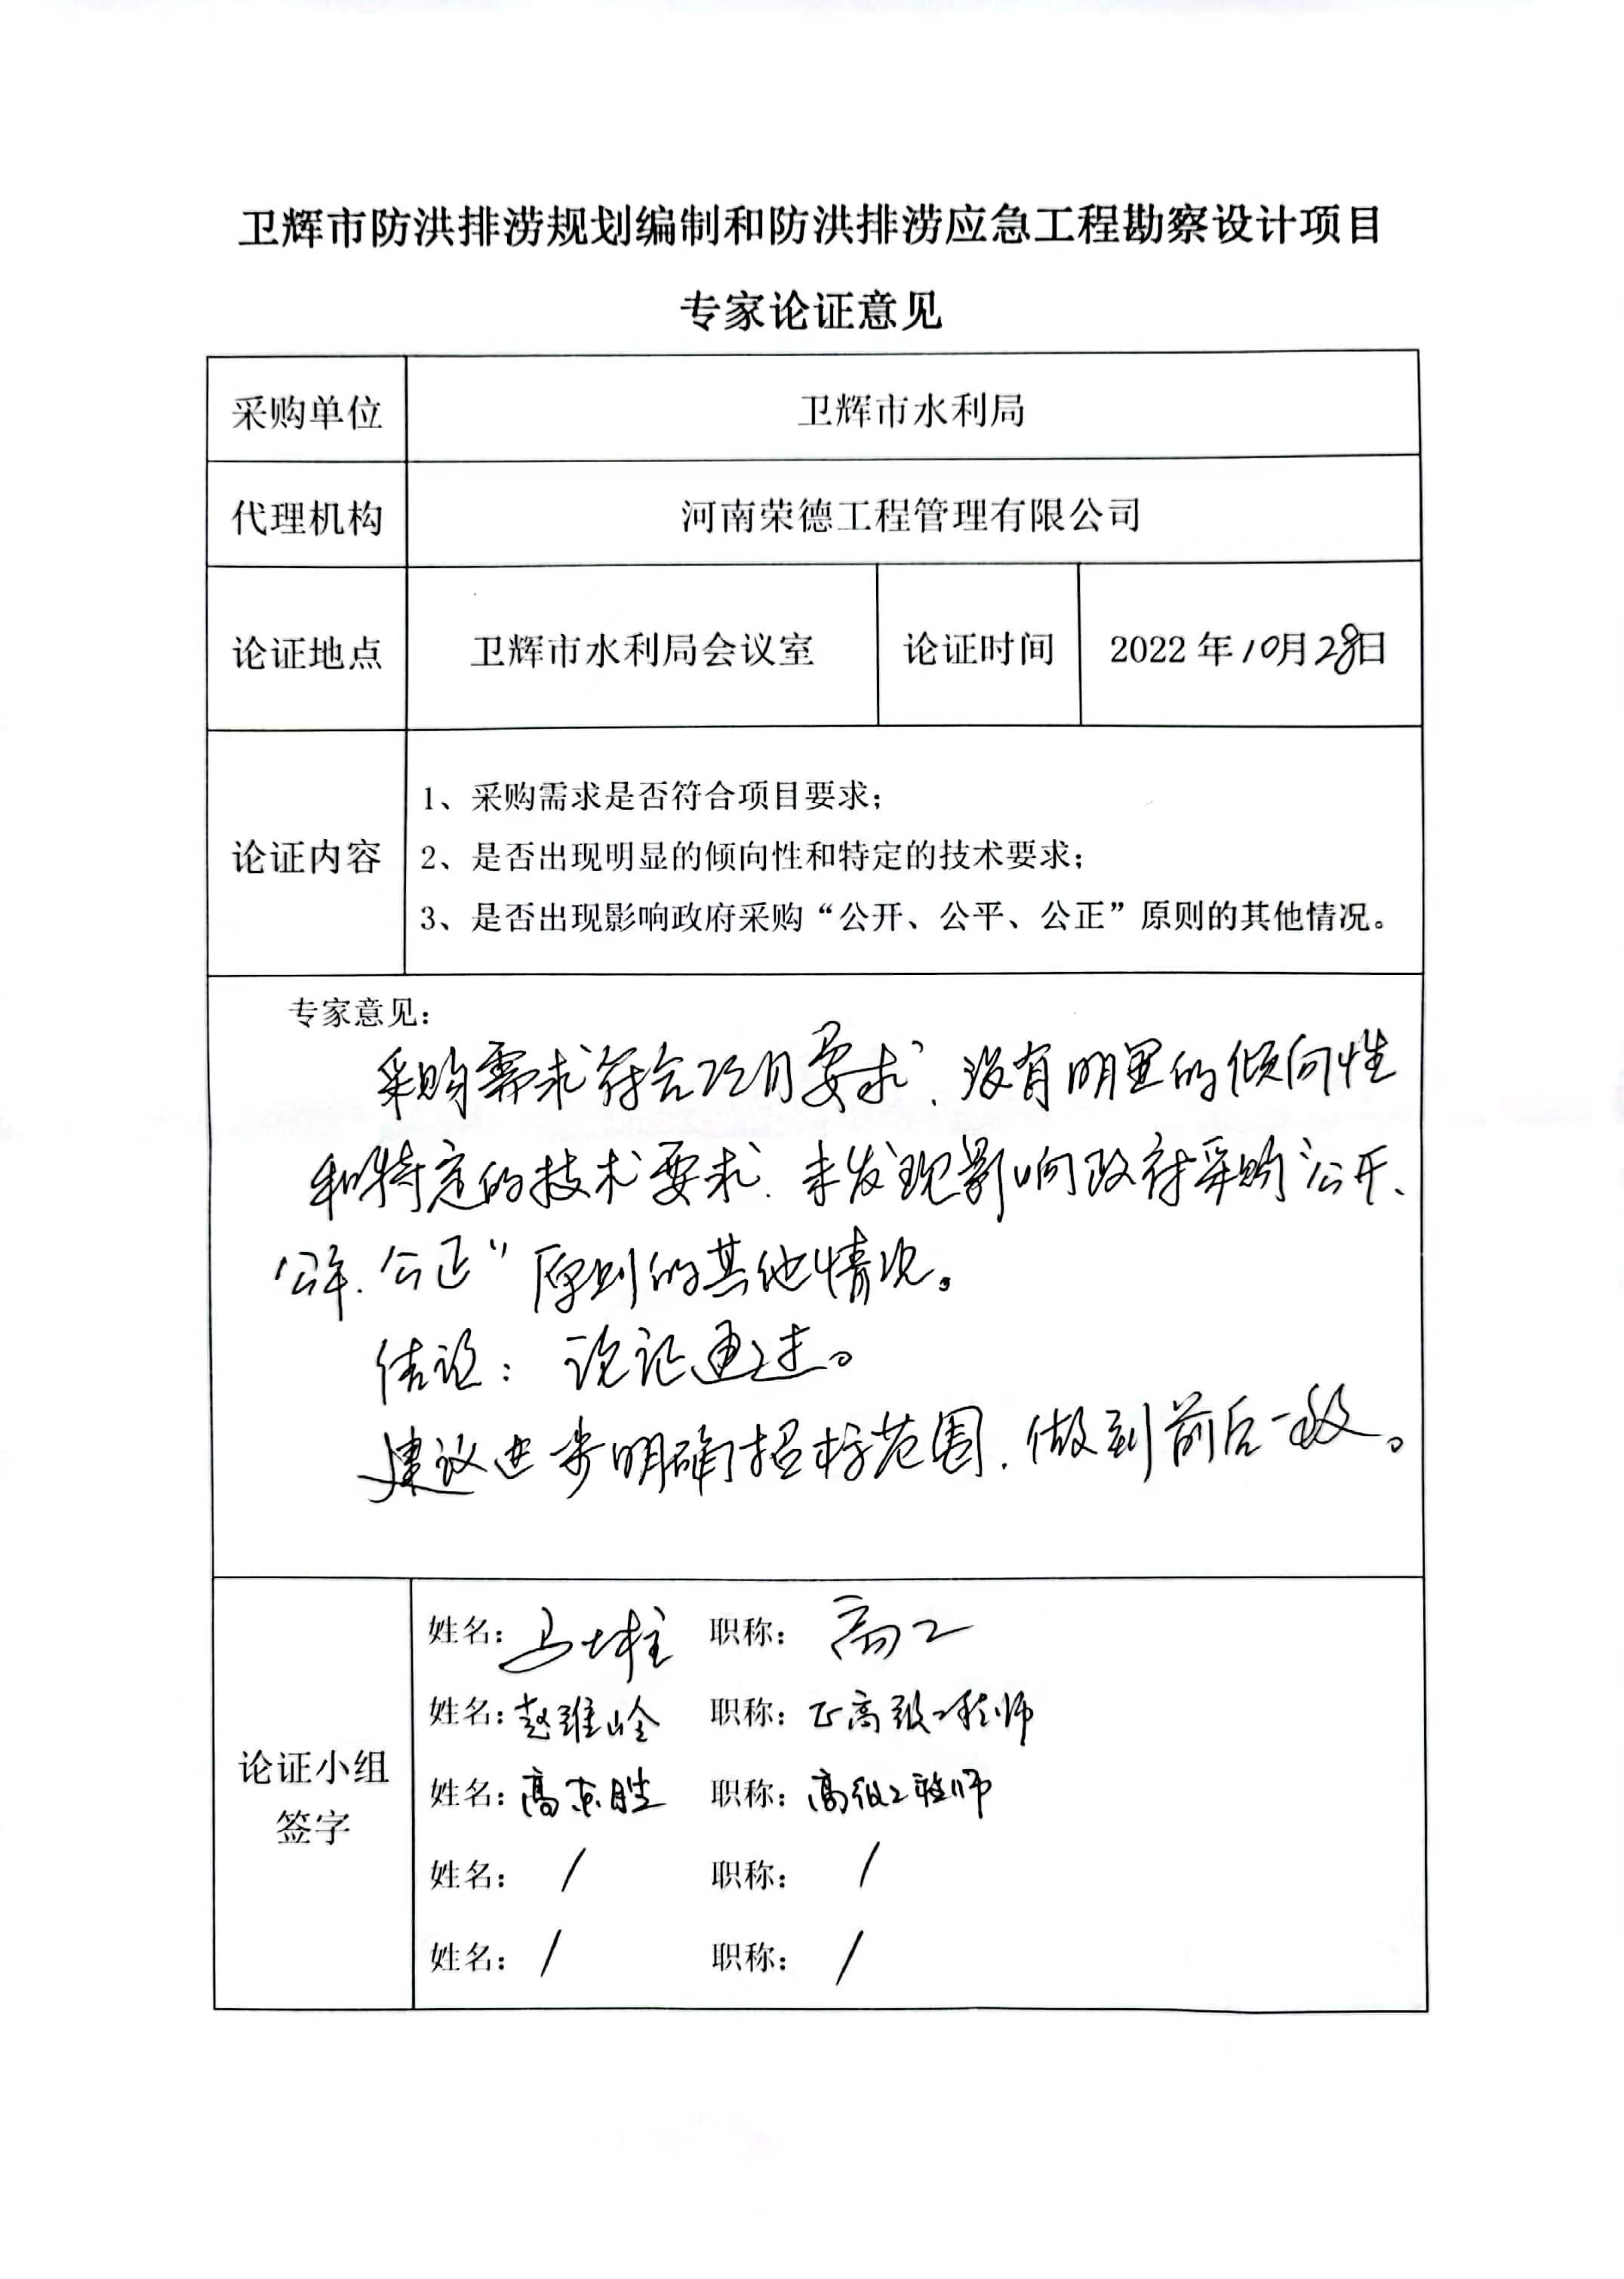 卫辉市防洪排涝规划编制和防洪排涝应急工程勘察设计项目
专家论证意见
采购单位 卫辉市水利局
代理机构 河南荣德工程管理有限公司
论证地点 卫辉市水利局会议室 论证时间 2022年10月28日
论证内容
1、采购需求是否符合项目要求；
2、是否出现明显的倾向性和特定的技术要求；
3、是否出现影响政府采购“公开、公平、公正”原则的其他情况。
专家意见：
采购需求符合项目要求、没有明显的倾向性
和特定的技术要求、未发现影响政府采购“公开、
公平、公正”原则的其他情况。
结论：论证通过。
建议进步明确招标范围，做到前后一致。
论证小组
签字
姓名：马 职称：高工
姓名：赵 职称：正高级工程师
姓名：高 胜 职称：高级工程师
姓名： / 职称： /
姓名： / 职称： /